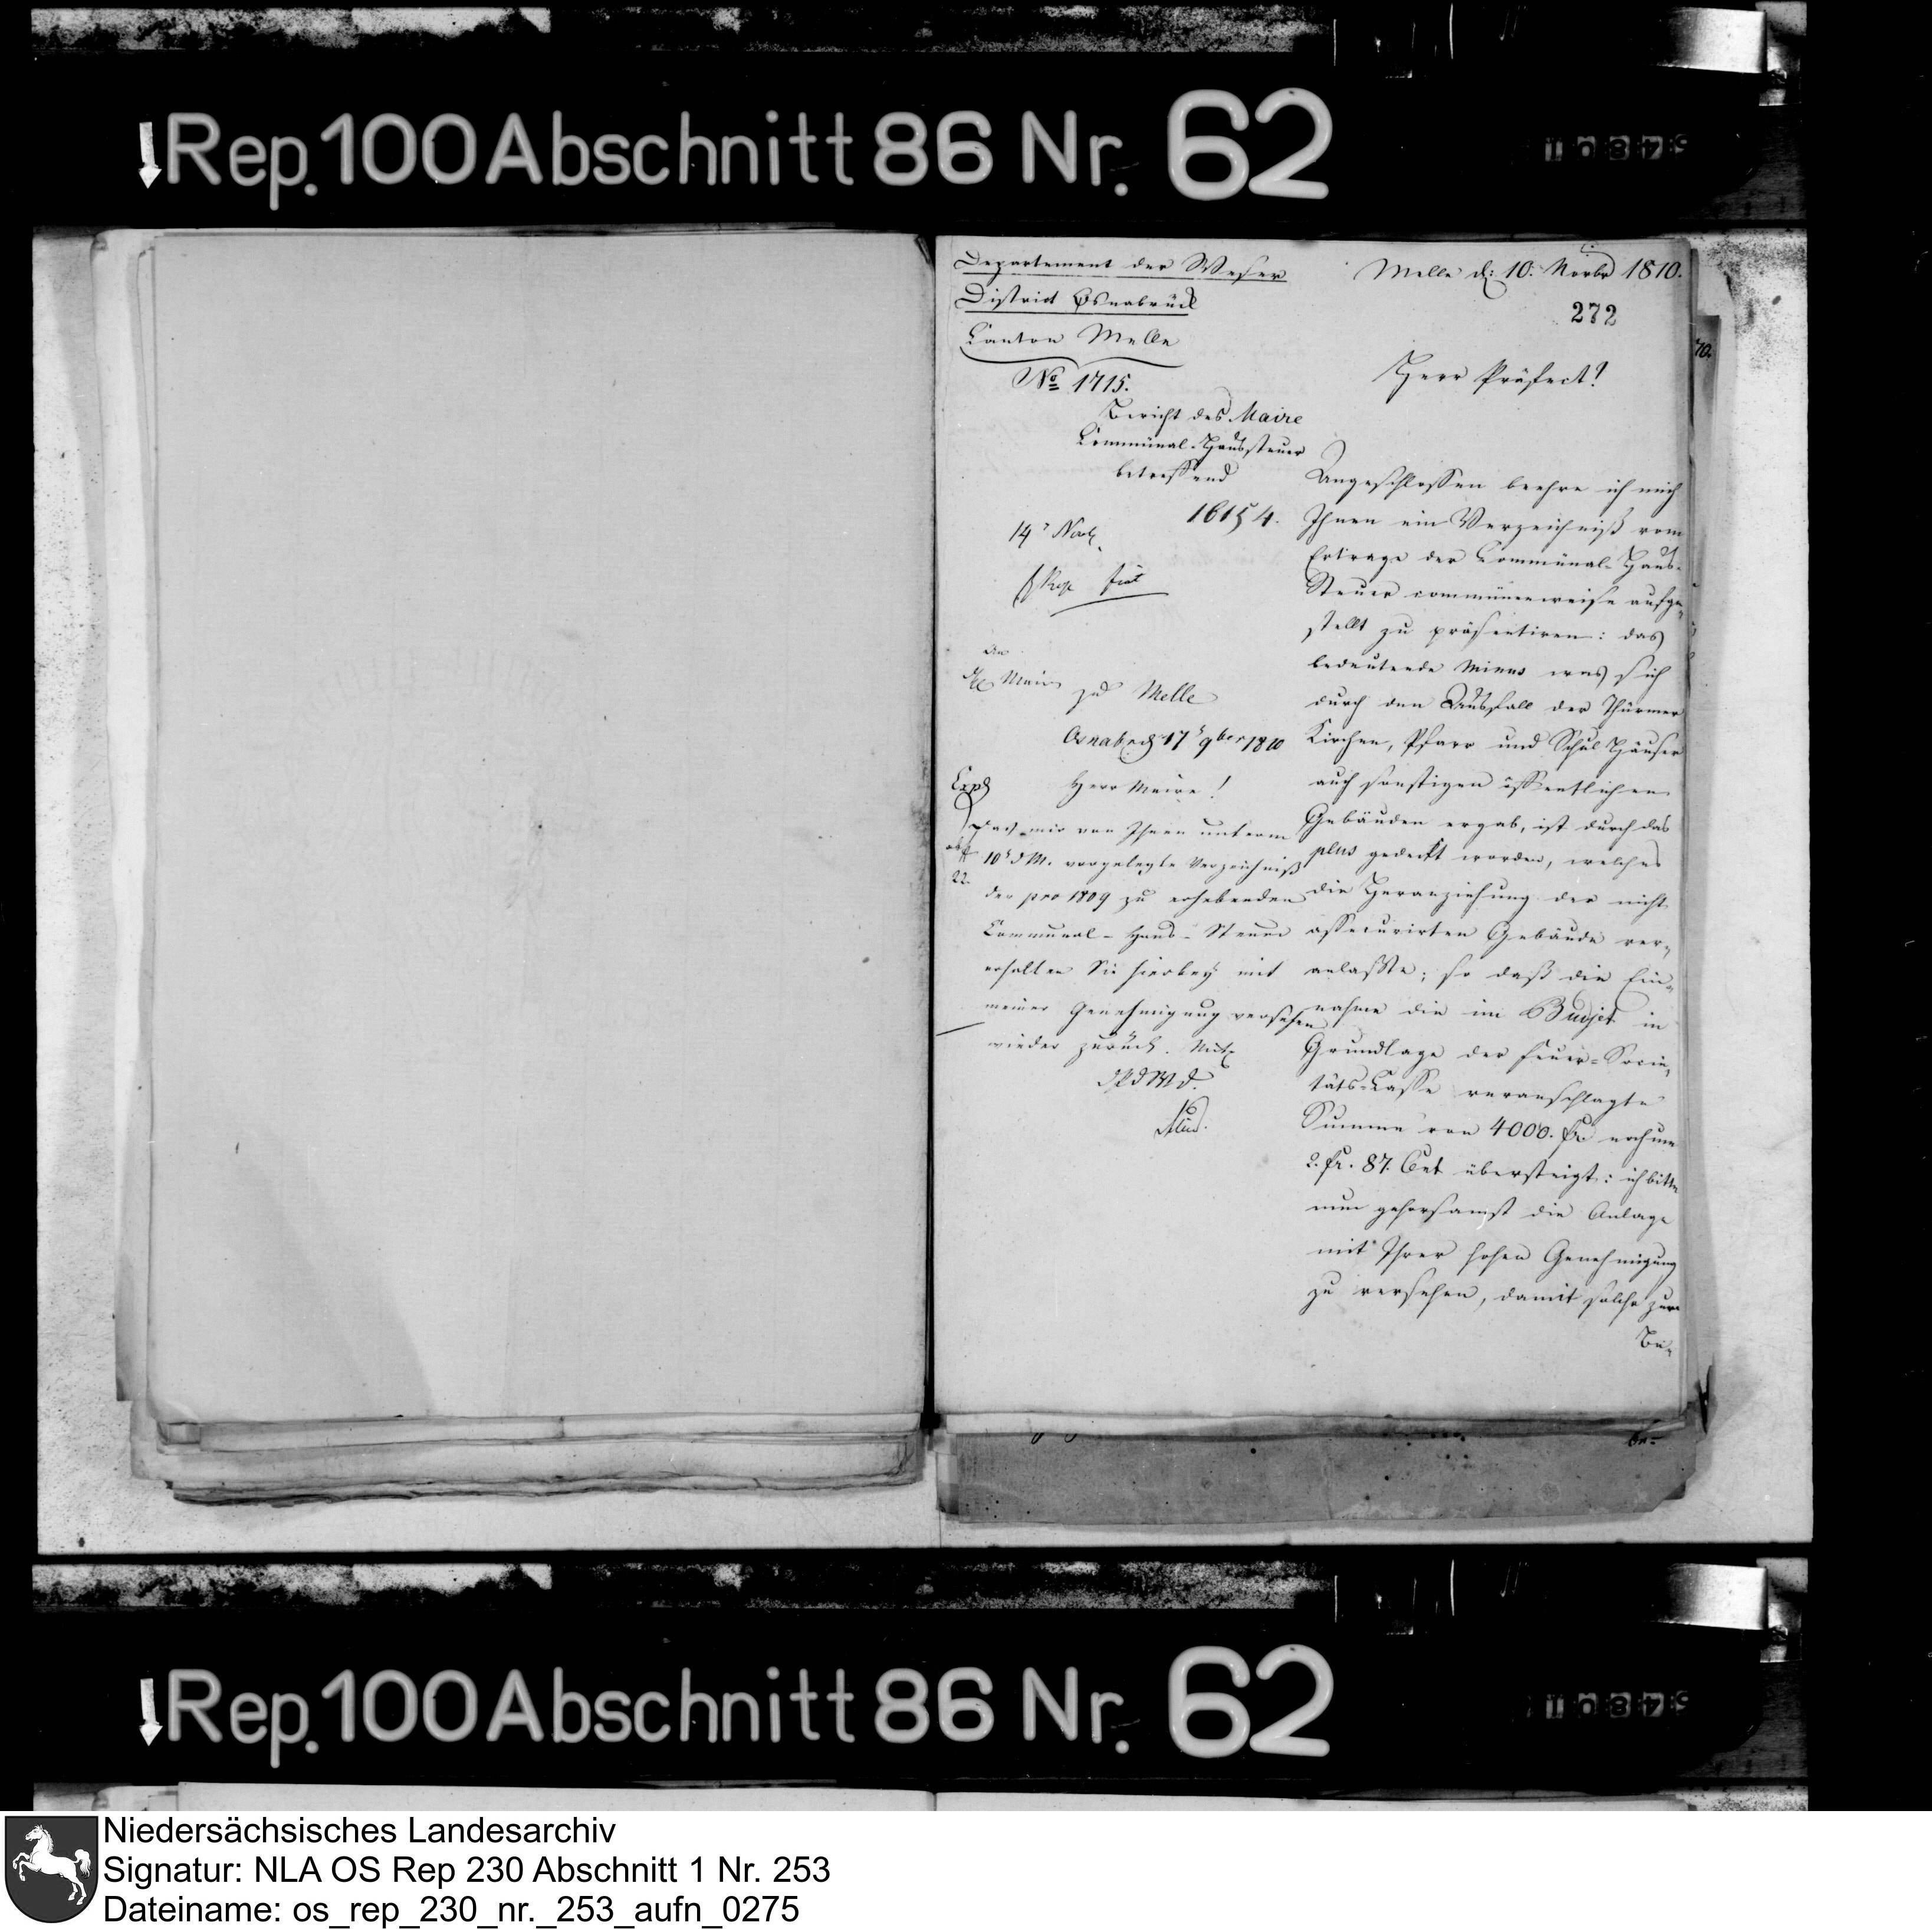 Rep. 100 Abschnitt 86 Nr. 62
10879
Departement der Weser
District Osnabrück
Canton Melle
No 1715.
Bericht des Maire
Communal-Haussteuer
betreffend
16154.
14 Nov.
An
Maire zu Melle
Osnabrück 17 9ber 1810
Herr Maire!
Das mir von Ihnen unterm
10 d M. vorgelegte Verzeichniß
der pro 1809 zu erhebenden
Communal-Haus-Steuer
erhalten Sie hierbey mit
meiner Genehmigung versehen
wieder zurück.
Melle d: 10: Novbr 1810.
272
Herr Präfect!
Angeschlossen beehre ich mich
Ihnen ein Verzeichniß vom
Ertrage der Communal-Haus-
Steuer communenweise aufge-
stellt zu präsentiren: das
bedeutende Minus was sich
durch den Ausfall der Thürmer
Kirchen, Pfarr und Schul Häuser
auch sonstigen öffentlichen
Gebäuden ergab, ist durch das
plus gedeckt worden, welches
die Heranziehung der nicht
assecurirten Gebäude ver-
anlaßte; so daß die Ein-
nahme die im Budjet in
Grundlage der Feuer-Socie-
täts-Casse veranschlagte
Summe von 4000. fr noch um
2. fr. 87. Cent übersteigt: ich bitte
nun gehorsamst die Anlage
mit Ihrer hohen Genehmigung
zu versehen, damit solche zur
Be-
Rep. 100 Abschnitt 86 Nr. 62
10879
Niedersächsisches Landesarchiv
Signatur: NLA OS Rep 230 Abschnitt 1 Nr. 253
Dateiname: os_rep_230_nr._253_aufn_0275